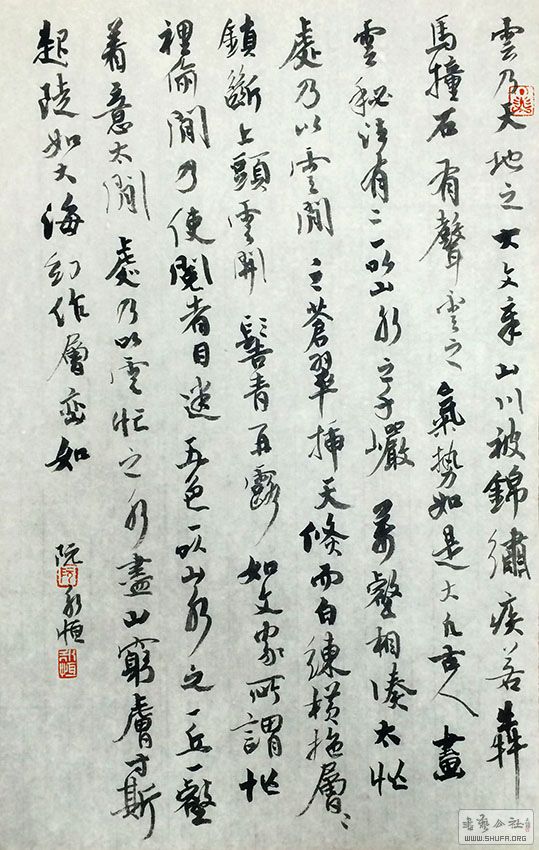 雲乃天地之大文章山川被錦繡疾若犇
馬撞石有聲雲之氣勢如是大凡古人畫
雲秘法有二一以山水之千巖萬壑相湊太忙
處乃以雲閒之蒼翠插天倏而白練橫拖層〻
鎖斷上頭雲開髻青再露如文家所謂忙
裡偷閒乃使閱者目迷五色一以山水之一丘一壑
着意太閒處乃以雲忙之水盡山窮膚寸斯
起陡如大海幻作層巒如
阮永恒
書藝公社
WWW.SHUFA.ORG